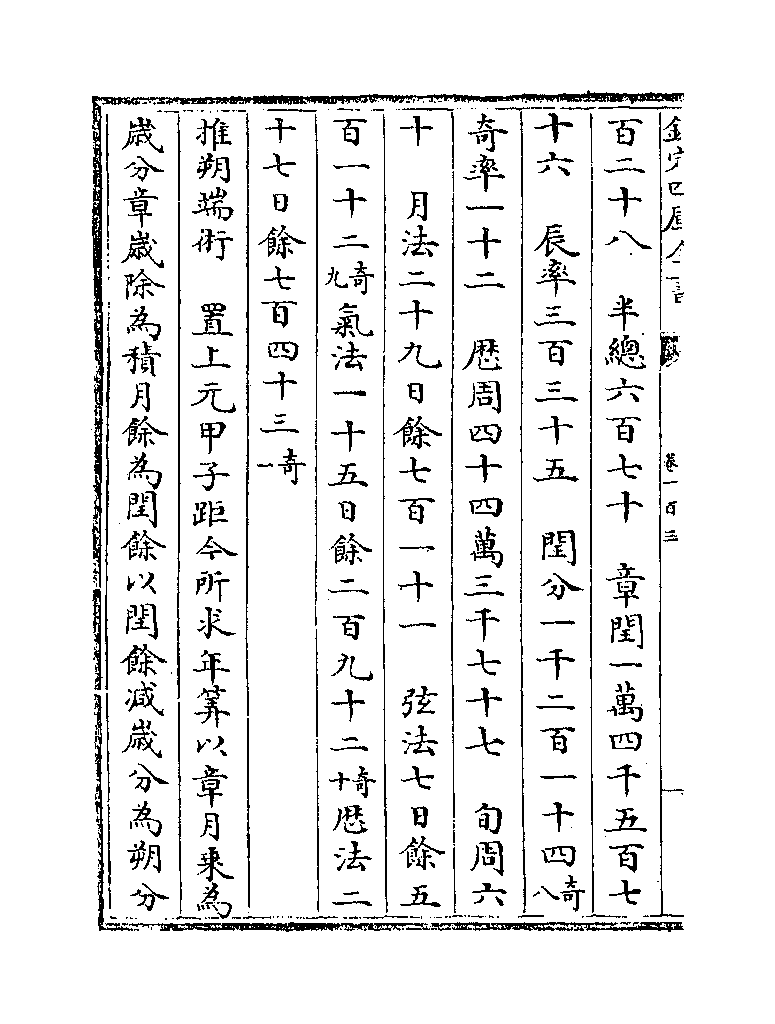 欽定四庫全書
卷一百三
百二十八　半總六百七十　章閏一萬四千五百七
十六　辰率三百三十五　閏分一千二百一十四奇八
奇率一十二　厯周四十四萬三千七十七　旬周六
十　月法二十九日餘七百一十一　弦法七日餘五
百一十二奇九氣法一十五日餘二百九十二奇十厯法二
十七日餘七百四十三奇一
推朔端術　置上元甲子距今所求年筭以章月乗為
歳分章歳除為積月餘為閏餘以閏餘减歳分為朔分